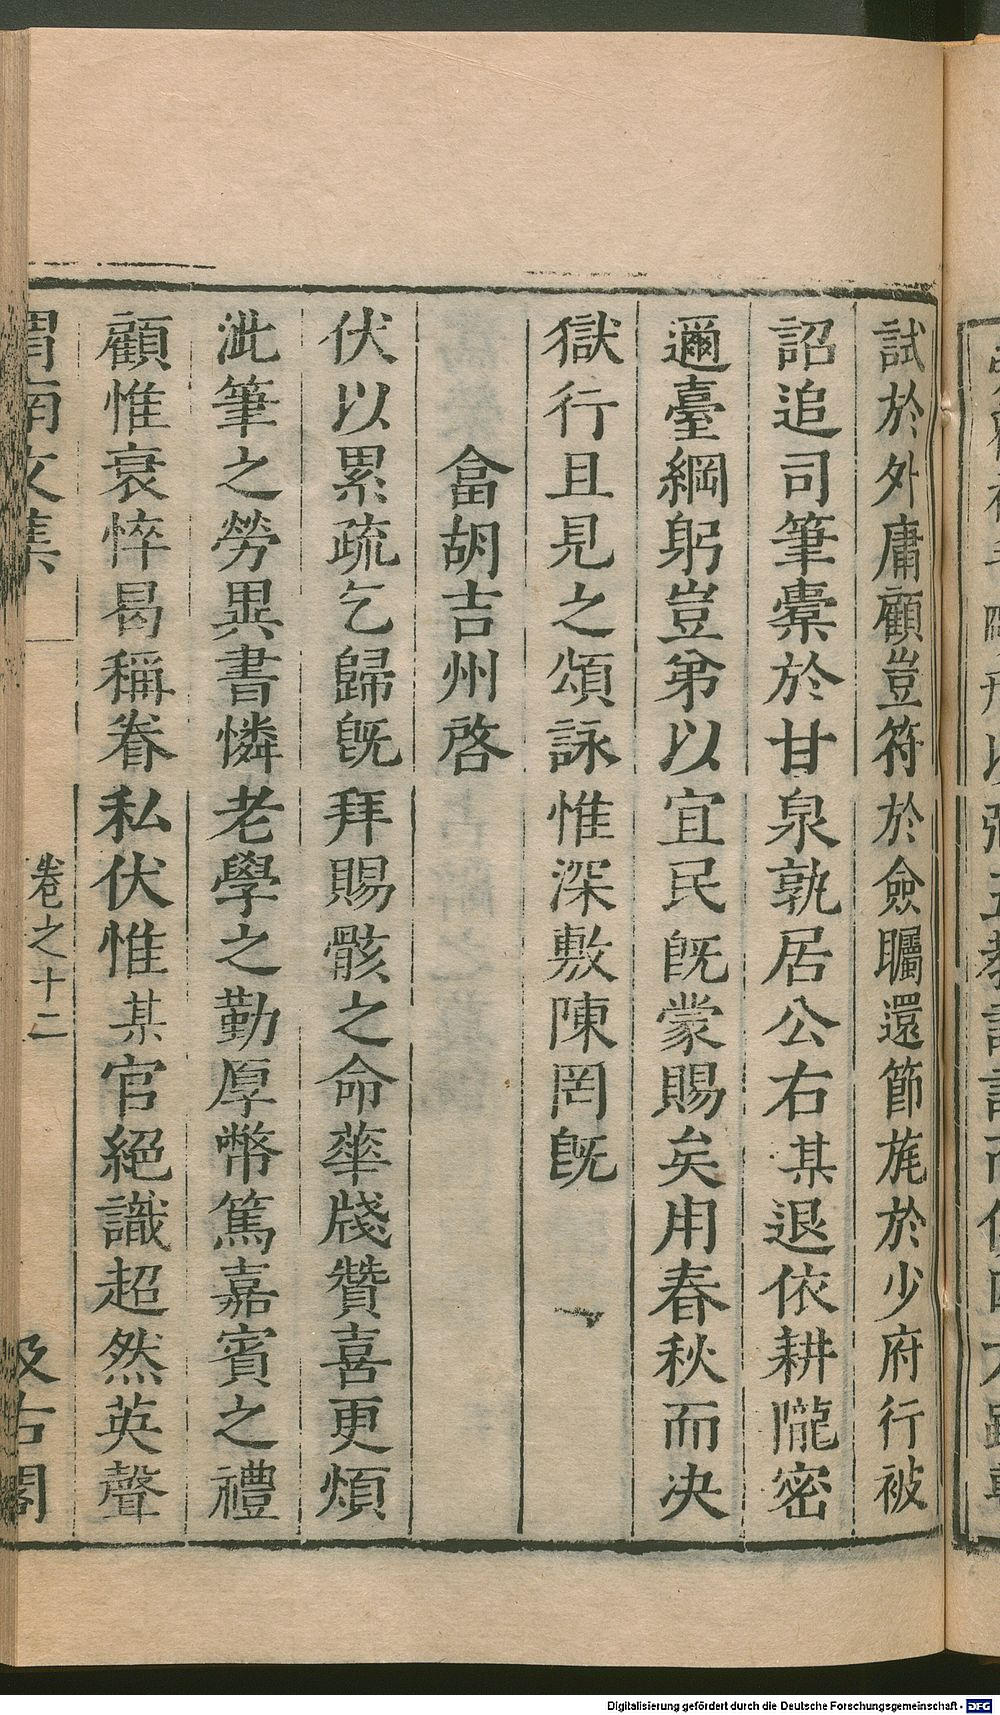 試於外庸顧豈符於僉矚還節旄於少府行被
詔追司筆橐於甘泉孰居公右某退依耕隴密
邇臺綱躬豈弟以宜民旣蒙賜矣用春秋而决
獄行且見之頌詠惟深敷陳罔旣
畣胡吉州啓
伏以累疏乞歸旣拜賜骸之命華牋贊喜更煩
泚筆之勞異書憐老學之勤厚幣篤嘉賓之禮
顧惟衰悴曷稱眷私伏惟某官絕識超然英聲
渭南文集
卷之十二
汲古閣
Digitalisierung gefördert durch die Deutsche Forschungsgemeinschaft - DFG